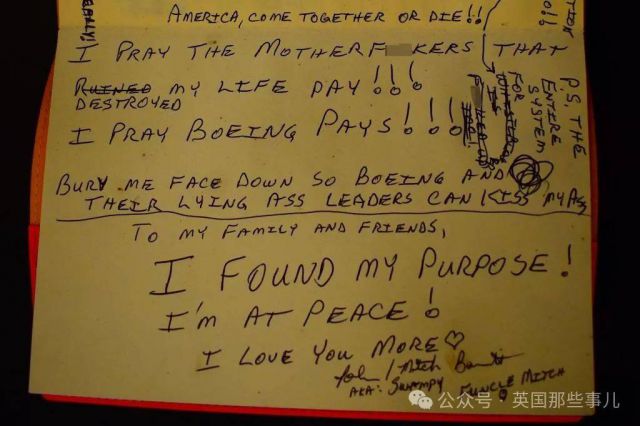 AMERICA, COME TOGETHER OR DIE!!
I PRAY THE MOTHERF KERS THAT
RUINED MY LIFE PAY!!!
DESTROYED
I PRAY BOEING PAYS!!!
BURY ME FACE DOWN SO BOEING AND
THEIR LYING ASS LEADERS CAN KISS MY ASS
TO MY FAMILY AND FRIENDS,
I FOUND MY PURPOSE!
I'M AT PEACE!
I LOVE YOU MORE♡
AKA: SWAMPY
UNCLE MITCH
P.S. THE
ENTIRE
SYSTEM
FOR
公众号·英国那些事儿